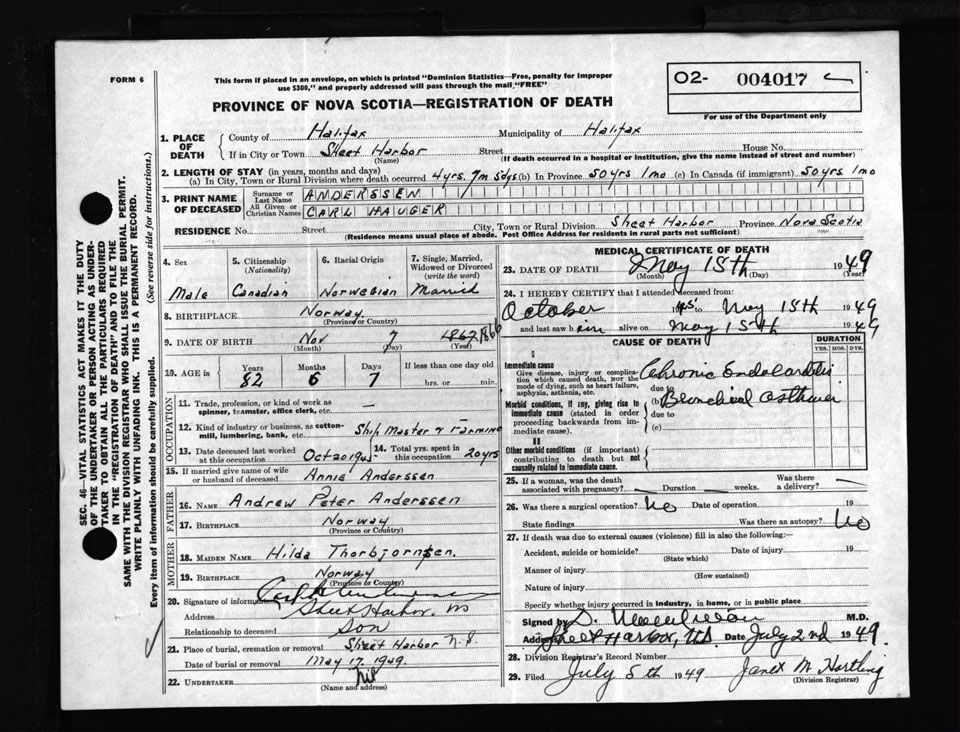 FORM 6
This form if placed in an envelope, on which is printed "Dominion Statistics—Free, penalty for improper
use $300," and properly addressed will pass through the mail "FREE"
O2- 004017
For use of the Department only
PROVINCE OF NOVA SCOTIA—REGISTRATION OF DEATH
SEC. 46—VITAL STATISTICS ACT MAKES IT THE DUTY
OF THE UNDERTAKER OR PERSON ACTING AS UNDER-
TAKER TO OBTAIN ALL THE PARTICULARS REQUIRED
IN THE "REGISTRATION OF DEATH" AND TO FILE THE
SAME WITH THE DIVISION REGISTRAR WHO SHALL ISSUE THE BURIAL PERMIT.
WRITE PLAINLY WITH UNFADING INK. THIS IS A PERMANENT RECORD.
Every item of information should be carefully supplied. (See reverse side for instructions.)
1. PLACE OF DEATH
County of Halifax Municipality of Halifax
If in City or Town Sheet Harbor Street House No.
(Name) (If death occurred in a hospital or institution, give the name instead of street and number)
2. LENGTH OF STAY (in years, months and days)
(a) In City, Town or Rural Division where death occurred 4yrs. 7m 5dys (b) In Province 50yrs 1mo (c) In Canada (if immigrant) 50yrs 1mo
3. PRINT NAME OF DECEASED
Surname or Last Name ANDERSSEN
All Given or Christian Names CARL HAUGER
RESIDENCE No. Street City, Town or Rural Division Sheet Harbor Province Nova Scotia
(Residence means usual place of abode. Post Office Address for residents in rural parts not sufficient)
4. Sex Male
5. Citizenship (Nationality) Canadian
6. Racial Origin Norwegian
7. Single, Married, Widowed or Divorced (write the word) Married
8. BIRTHPLACE Norway
(Province or Country)
9. DATE OF BIRTH Nov 7 1867 1866
(Month) (Day) (Year)
10. AGE in Years 82 Months 6 Days 7 If less than one day old hrs. or min.
OCCUPATION
11. Trade, profession, or kind of work as
spinner, teamster, office clerk, etc. —
12. Kind of industry or business, as cotton-
mill, lumbering, bank, etc. Ship Master & Farming
13. Date deceased last worked at this occupation Oct 20 194
14. Total yrs. spent in this occupation 20yrs
15. If married give name of wife or husband of deceased Annie Anderssen
FATHER
16. NAME Andrew Peter Anderssen
17. BIRTHPLACE Norway
(Province or Country)
MOTHER
18. MAIDEN NAME Hilda Thorbjornsen.
19. BIRTHPLACE Norway
(Province or Country)
20. Signature of informant
Address Sheet Harbor. NS
Relationship to deceased Son
21. Place of burial, cremation or removal Sheet Harbor N.S.
Date of burial or removal May 17, 1949.
22. UNDERTAKER Nil
(Name and address)
MEDICAL CERTIFICATE OF DEATH
23. DATE OF DEATH May 15th 1949
(Month) (Day) (Year)
24. I HEREBY CERTIFY that I attended deceased from:
October 19 to May 15th 1949
and last saw him alive on May 15th 1949
CAUSE OF DEATH DURATION
YRS. MOS. DYS.
I
Immediate cause
Give disease, injury or compli-
cation which caused death, not the
mode of dying, such as heart failure,
asphyxia, asthenia, etc.
Chronic Endocarditis
due to
(b) Bronchial asthma
Morbid conditions, if any, giving rise to
immediate cause (stated in order
proceeding backwards from im-
mediate cause).
due to
(c)
II
Other morbid conditions (if important)
contributing to death but not
causally related to immediate cause.
25. If a woman, was the death
associated with pregnancy? Duration weeks. Was there a delivery?
26. Was there a surgical operation? No Date of operation. 19
State findings Was there an autopsy? No
27. If death was due to external causes (violence) fill in also the following:—
Accident, suicide or homicide? Date of injury 19
(State which)
Manner of injury
(How sustained)
Nature of injury
Specify whether injury occurred in industry, in home, or in public place
Signed by M.D.
Address Sheet Harbor, NS Date July 2nd 1949.
28. Division Registrar's Record Number
29. Filed July 5th 1949 Janet M. Hartling
(Division Registrar)